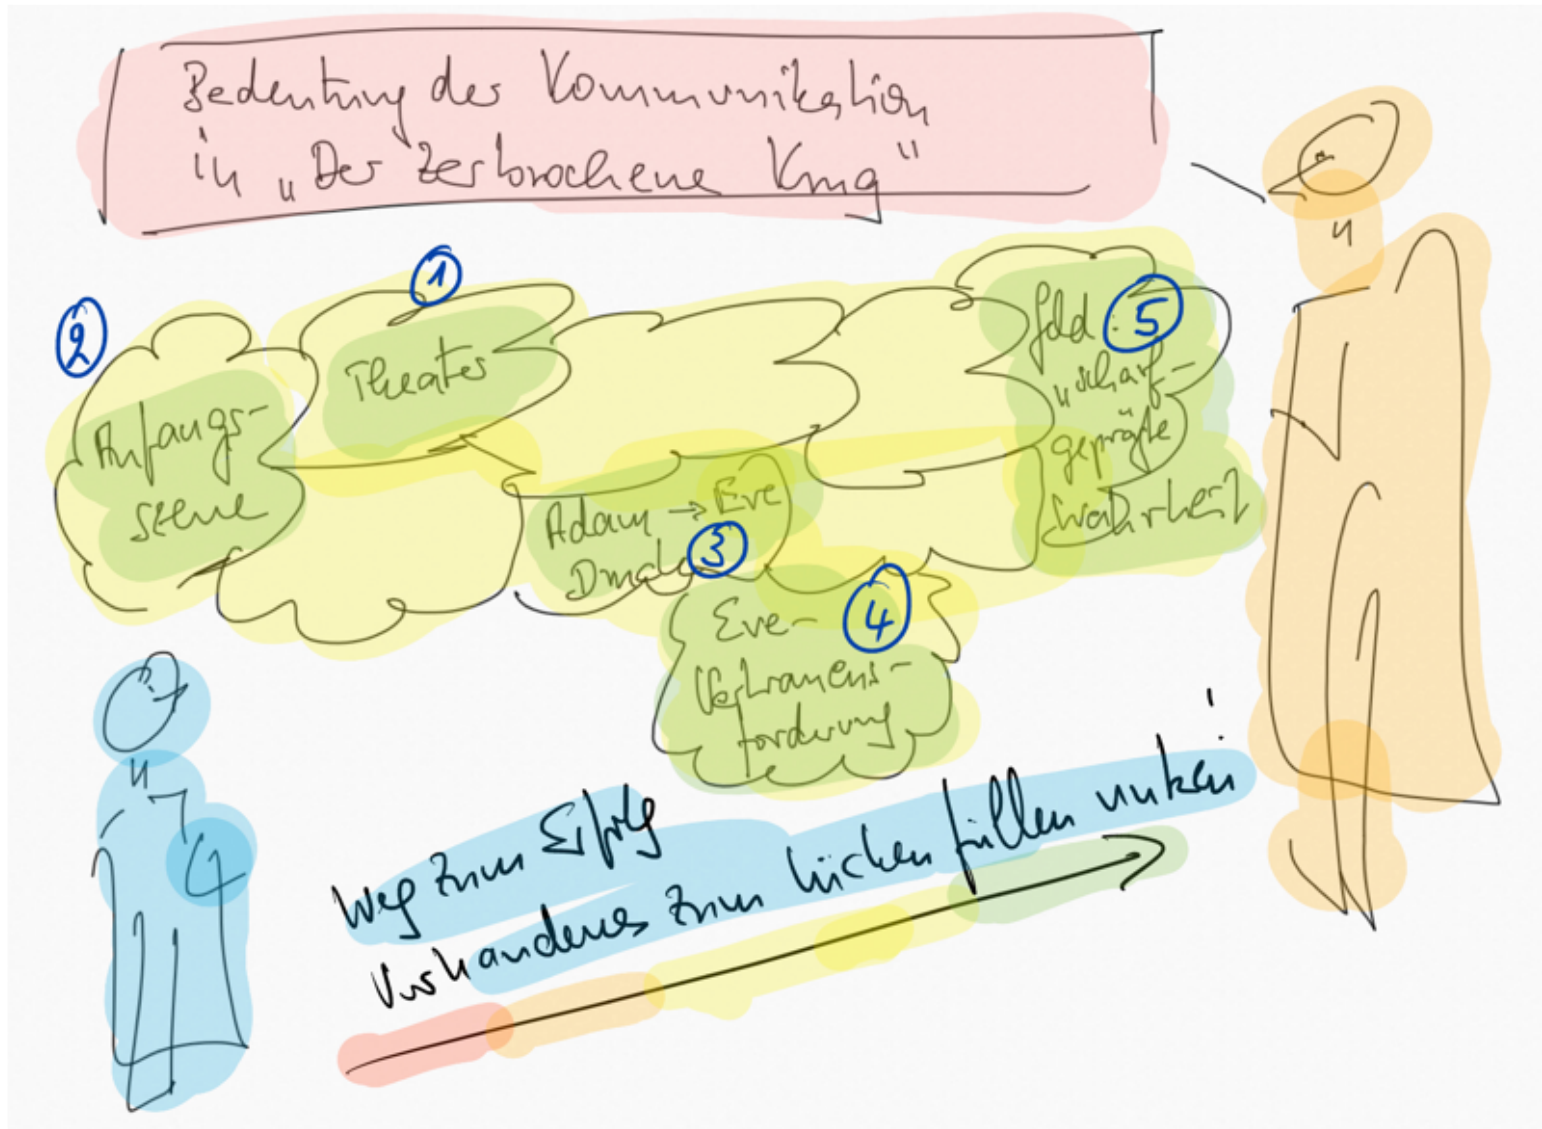 Bedeutung der Kommunikation
in „Der zerbrochene Krug"
1
Theater
2
Anfangs-
szene
Adam → Eve
3
4
Eve-
Vertrauens-
forderung
Geld: 5
„scharf-
geprägte
Wahrheit
Weg zum Erfolg
Vorhandenes zum Lücken füllen nutzen!